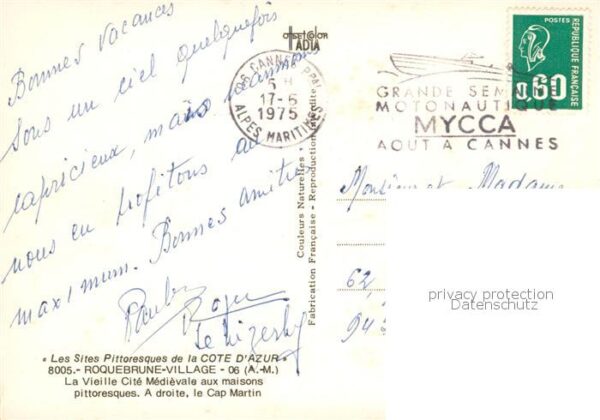 Bonnes vacances
Sous un ciel quelquefois
capricieux, mais
nous en profitons au
maximum. Bonnes amitiés
Roger
offset color
ADIA
06 CANNES PPAL
5 H
17-6
1975
ALPES MARITIMES
GRANDE SEM
MOTONAUTIQUE
MYCCA
AOUT A CANNES
POSTES
0,60
REPUBLIQUE FRANÇAISE
Couleurs Naturelles - Reproduction interdite
Fabrication Française -
Monsieur et Madame
62,
94
privacy protection
Datenschutz
« Les Sites Pittoresques de la COTE D'AZUR »
8005.- ROQUEBRUNE-VILLAGE - 06 (A.-M.)
La Vieille Cité Médièvale aux maisons
pittoresques. A droite, le Cap Martin